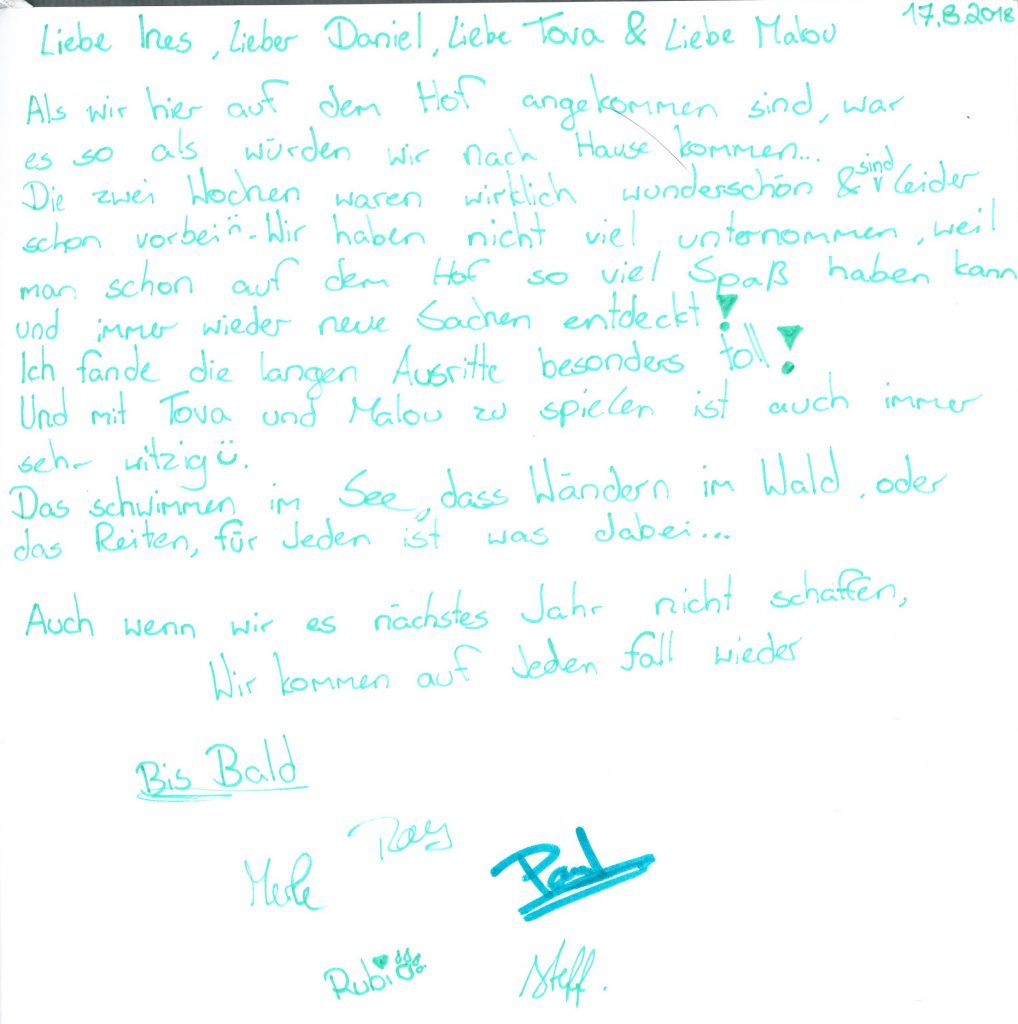 17.8.2018
Liebe Ines, Lieber Daniel, Liebe Tova & Liebe Malou
Als wir hier auf dem Hof angekommen sind, war
es so als würden wir nach Hause kommen...
Die zwei Wochen waren wirklich wunderschön & sind Leider
schon vorbei. Wir haben nicht viel unternommen, weil
man schon auf dem Hof so viel Spaß haben kann
und immer wieder neue Sachen entdeckt!
Ich fände die langen Ausritte besonders toll!
Und mit Tova und Malou zu spielen ist auch immer
sehr witzig ü.
Das schwimmen im See, dass Wändern im Wald, oder
das Reiten, für Jeden ist was dabei...
Auch wenn wir es nächstes Jahr nicht schaffen,
Wir kommen auf Jeden fall wieder
Bis Bald
Ray
Merle
Paul
Rubi
Steff.